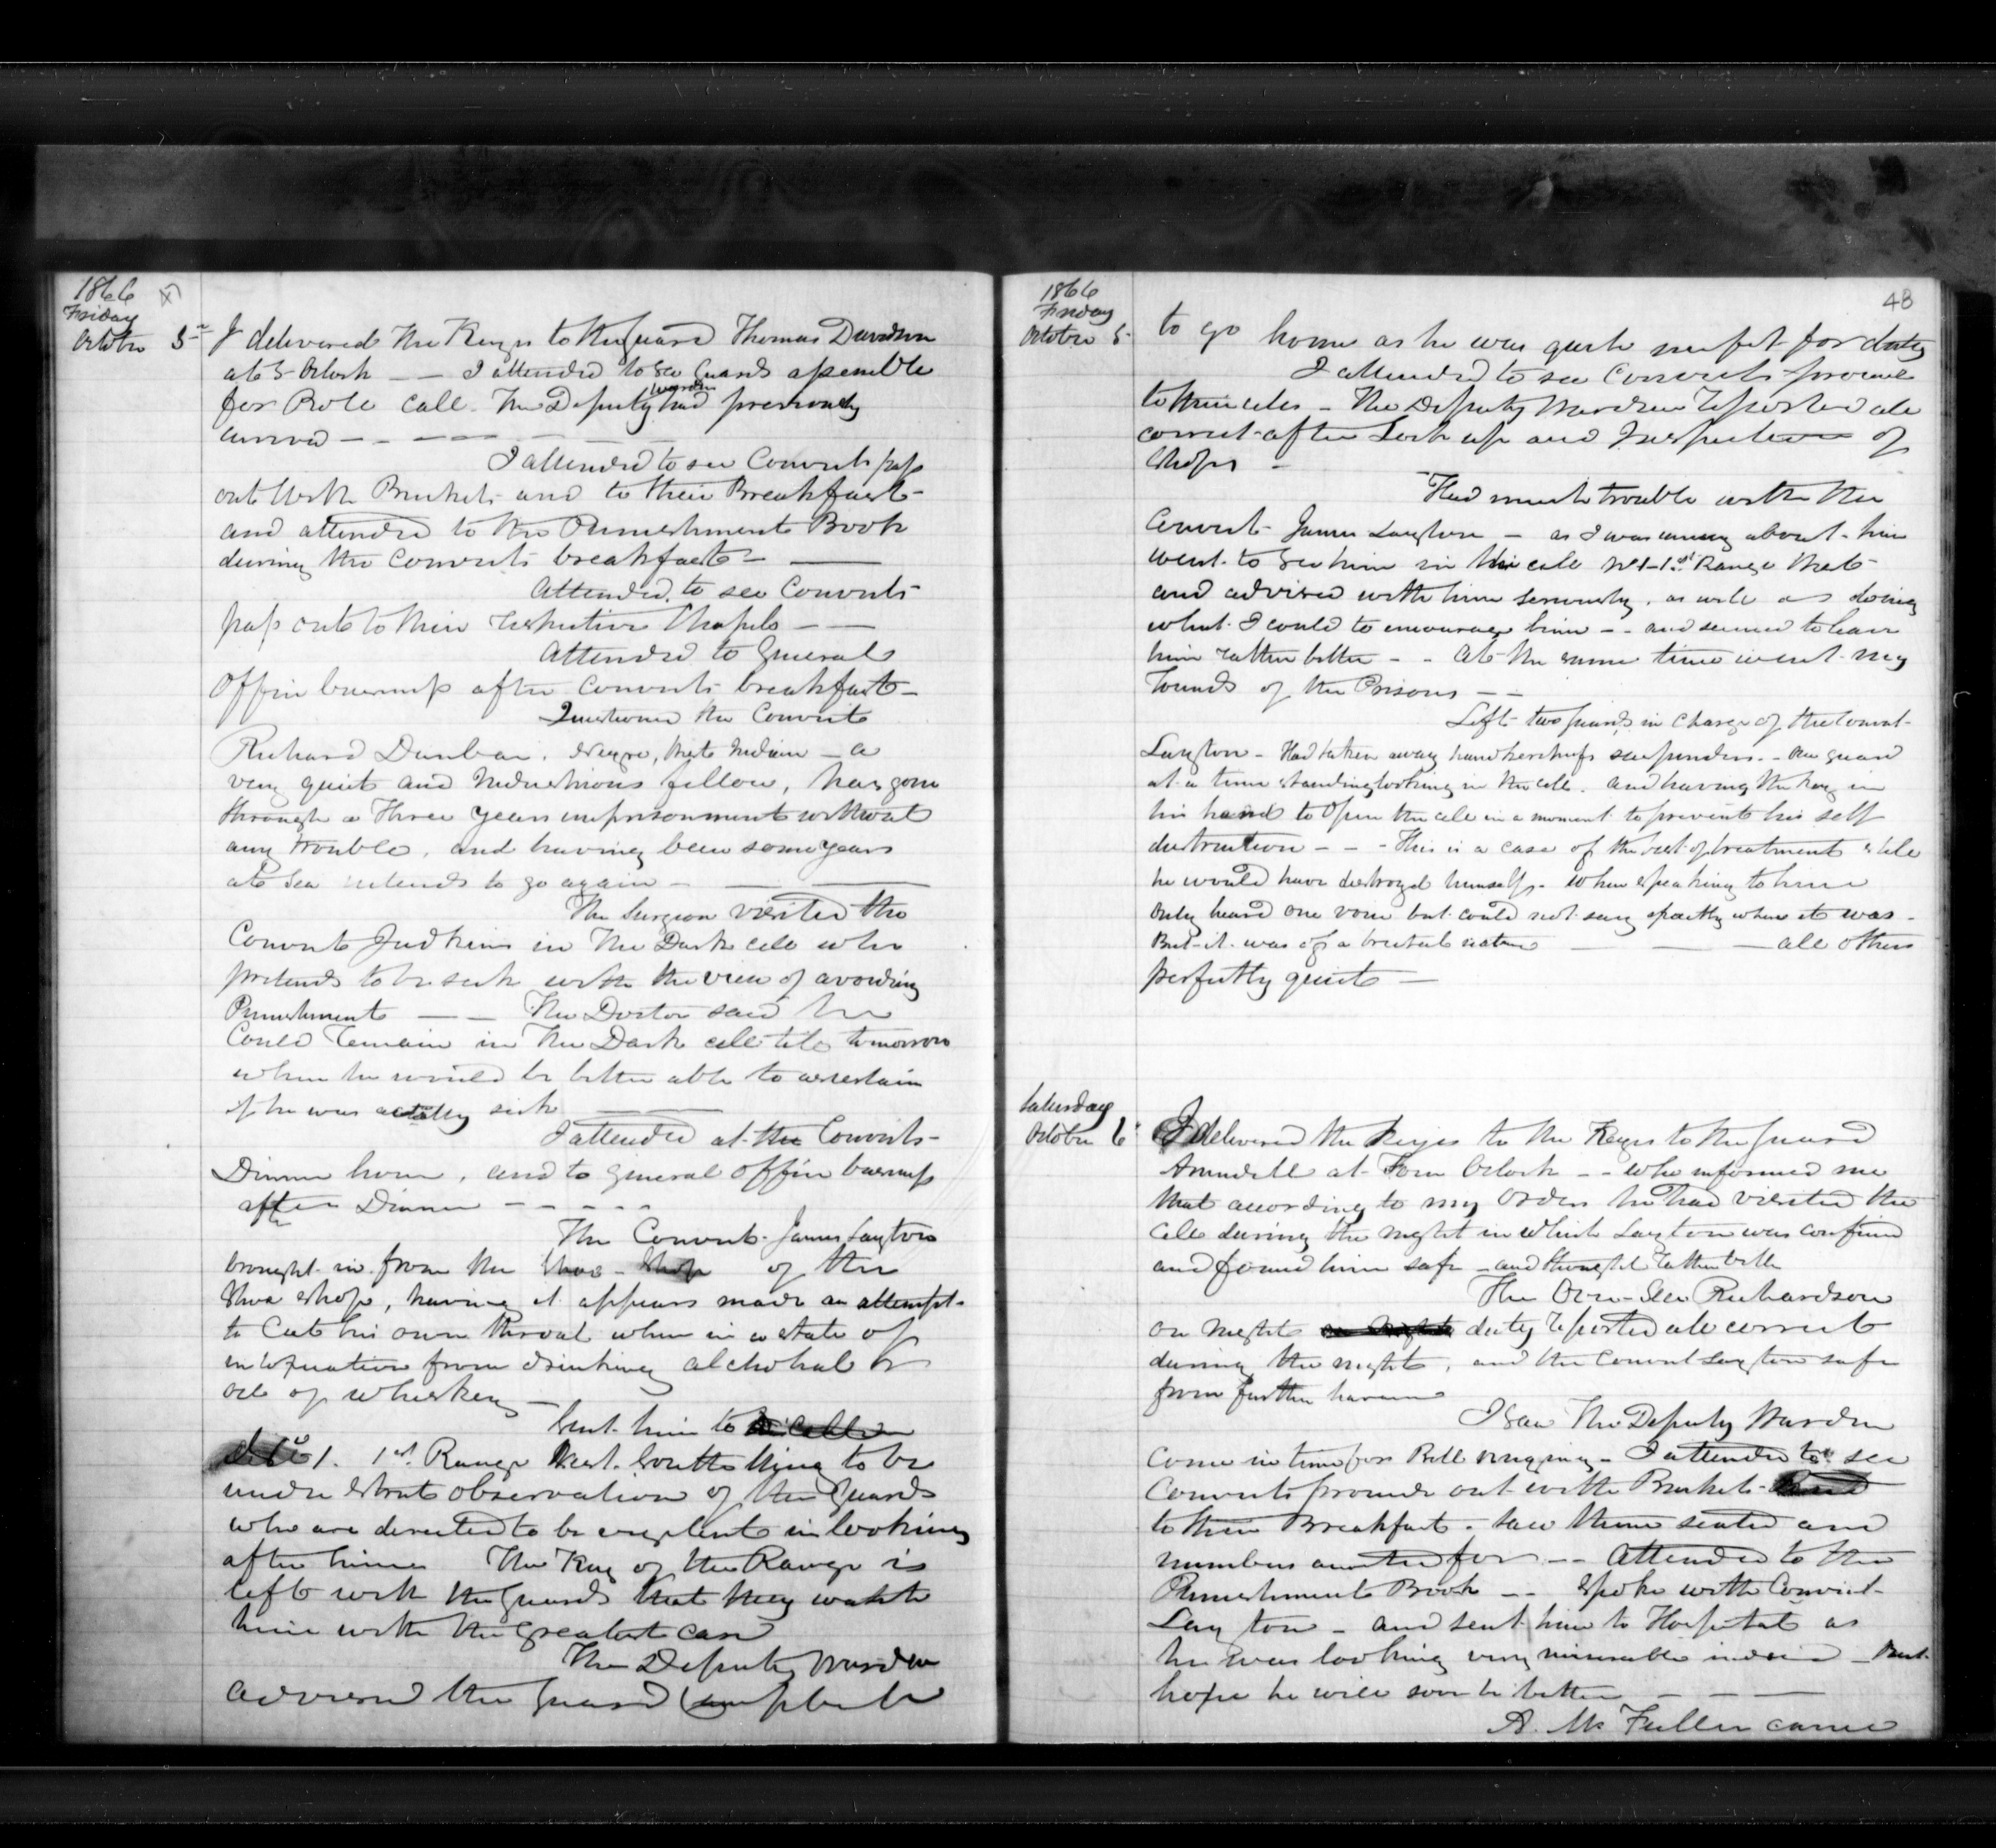 1866
Friday
October 5th
I delivered the Keys to the guard Thomas Davidson
at 5 Oclock — — I attended to see Guards assemble
for Role call. The Deputy Warden had previously
arrived — — — —
I attended to see Convicts pass
out with Buckets and to their Breakfast —
and attended to the Punishment Book
during the Convicts breakfast — —
Attended to see Convicts
pass out to their respective Chapels — —
Attended to General
Office business after Convicts breakfast —
Questioned the Convict
Richard Dunbar, Negro, — a
very quiet and Industrious fellow, has gone
through a Three years imprisonment without
any trouble, and having been some years
at Sea intends to go again — — —
The Surgeon visited the
Convict Judkins in the Dark cell who
pretends to be sick with the view of avoiding
Punishment — — The Doctor said he
Could remain in the Dark cell till tomorrow
when he would be better able to ascertain
if he was actually sick — —
I attended at the Convicts
Dinner hour, and to general office business
after Dinner — — — — —
The Convict James Layton
brought in from the Shoe Shop of the
Shoe Shop, having it appears made an attempt
to Cut his own throat when in a state of
intoxication from drinking alchohal or
oil of whiskey —
Sent him to
No 1. 1st Range West South Wing to be
under strict observation of the Guards
who are directed to be vigilent in looking
after him The Key of the Range is
left with the Guards that they watch
him with the greatest care
The Deputy Warden
advised the Guard Campbell
1866
Friday
October 5
48
to go home as he was quite unfit for duty
I attended to see Convicts proceed
to their cells — The Deputy Warden reported all
correct after Lock up and Inspection of
Shops —
Had much trouble with the
Convict James Layton — as I was uneasy about him
went to see him in his cell No 1 - 1st Range West
and advised with him seriously, as well as doing
what I could to encourage him — and seemed to leave
him rather better — — At the same time went my
rounds of the Prisons — —
Left two guards in Charge of the Convict
Layton — Had taken away handkerchiefs suspenders — One guard
at a time standing looking in the cell, and having the key in
his hand to Open the cell in a moment to prevent his self
destruction — — — This is a case of the best of treatment still
he would have destroyed himself — When speaking to him
only heard one voice but could not say exactly where it was —
But it was of a brutal nature — — — all others
perfectly quiet —
Saturday
October 6
I delivered the Keys to the Keys to the guard
Arundell at Four Oclock — — who informed me
that according to my Orders he had visited the
cell during the night in which Layton was confined
and found him safe — and thought rather better
The Over-Seer Richardson
on night duty reported all correct
during the night, and the Convict Layton safe
from further harm
I saw The Deputy Warden
come in time for Bell ringing — I attended to see
Convicts proceed out with Buckets —
to their Breakfast — saw them seated and
numbers accounted for — — Attended to the
Punishment Book — — Spoke with Convict
Layton — and sent him to Hospital as
he was looking very miserable indeed — But
hope he will soon be better — — —
A. Mc Fuller came